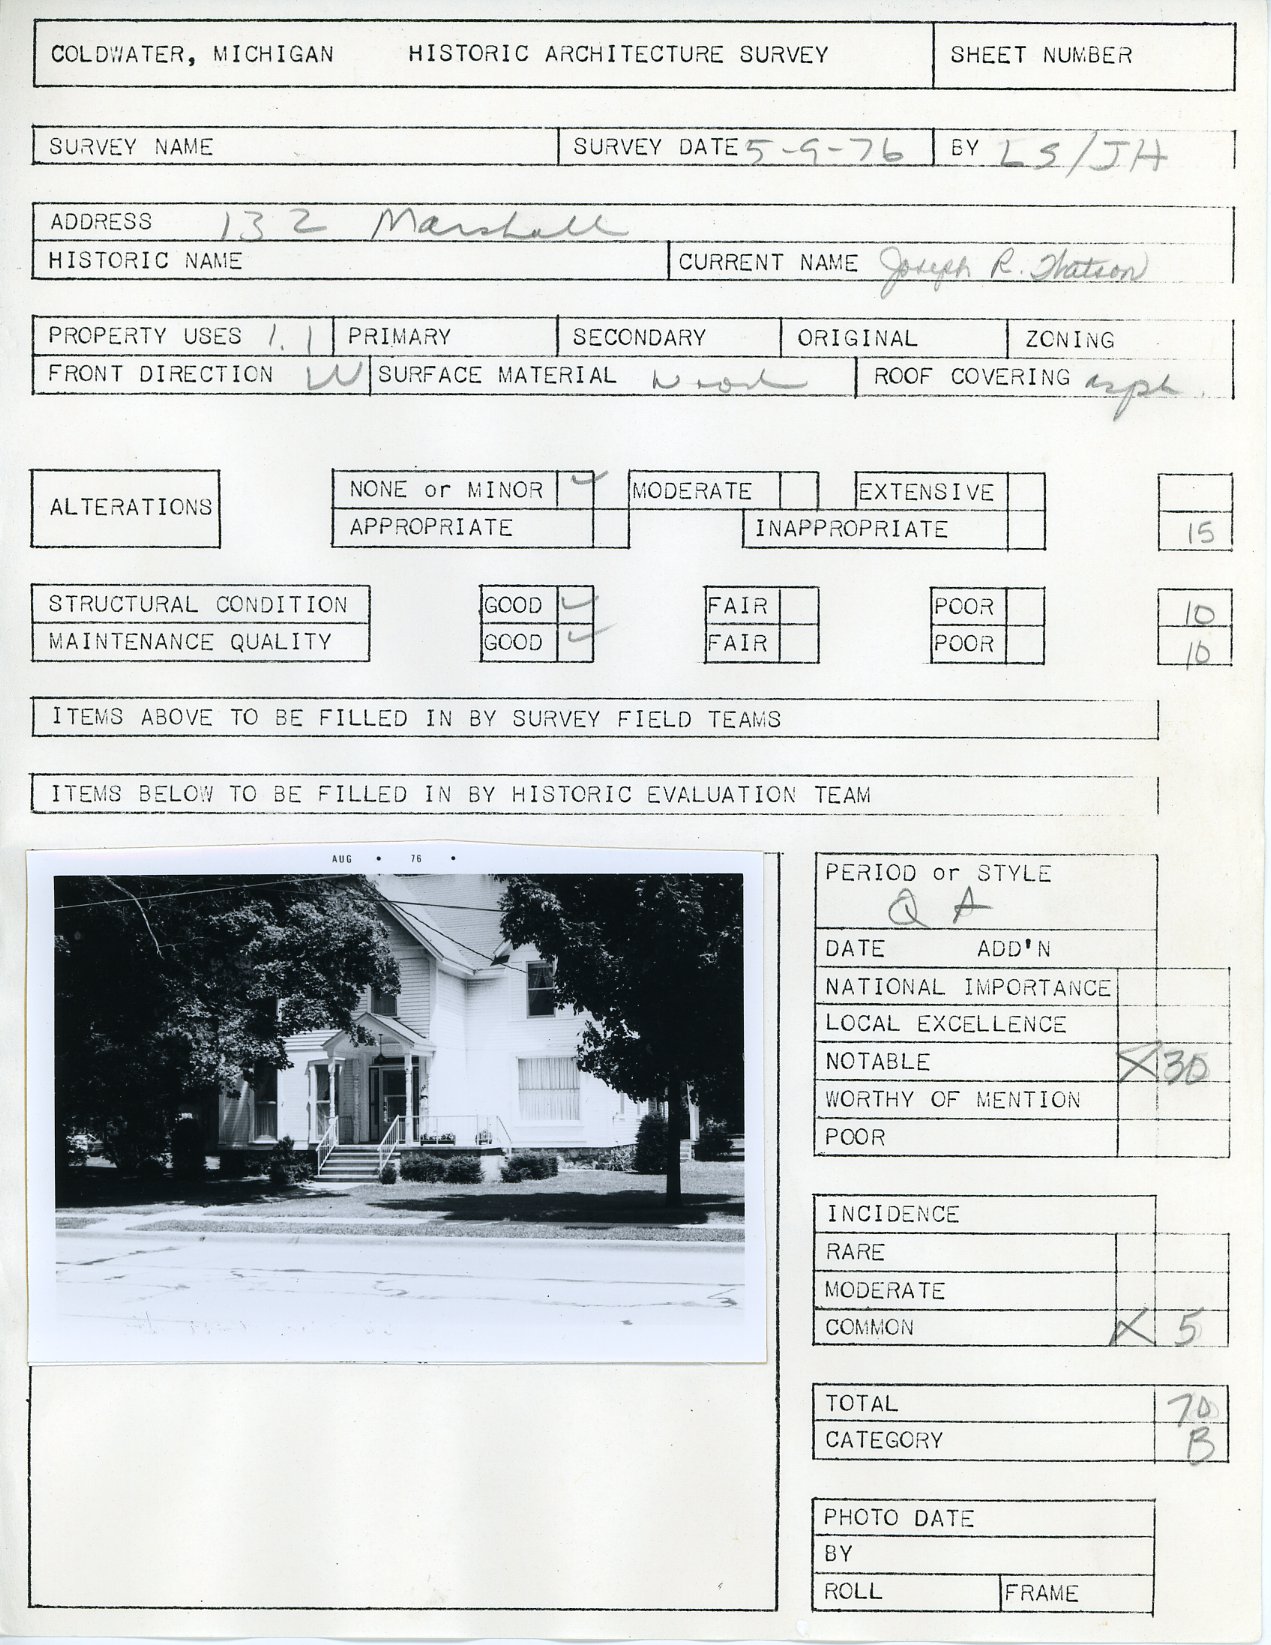 COLDWATER, MICHIGAN HISTORIC ARCHITECTURE SURVEY SHEET NUMBER
SURVEY NAME SURVEY DATE 5-9-76 BY LS/JH
ADDRESS 132 Marshall
HISTORIC NAME CURRENT NAME Joseph R. Watson
PROPERTY USES 1.1 PRIMARY SECONDARY ORIGINAL ZONING
FRONT DIRECTION W SURFACE MATERIAL wood ROOF COVERING asph.
ALTERATIONS
NONE or MINOR ✓ MODERATE EXTENSIVE
APPROPRIATE INAPPROPRIATE 15
STRUCTURAL CONDITION GOOD ✓ FAIR POOR 10
MAINTENANCE QUALITY GOOD ✓ FAIR POOR 10
ITEMS ABOVE TO BE FILLED IN BY SURVEY FIELD TEAMS
ITEMS BELOW TO BE FILLED IN BY HISTORIC EVALUATION TEAM
AUG • 76 •
PERIOD or STYLE
Q A
DATE ADD'N
NATIONAL IMPORTANCE
LOCAL EXCELLENCE
NOTABLE X 30
WORTHY OF MENTION
POOR
INCIDENCE
RARE
MODERATE
COMMON X 5
TOTAL 70
CATEGORY B
PHOTO DATE
BY
ROLL FRAME